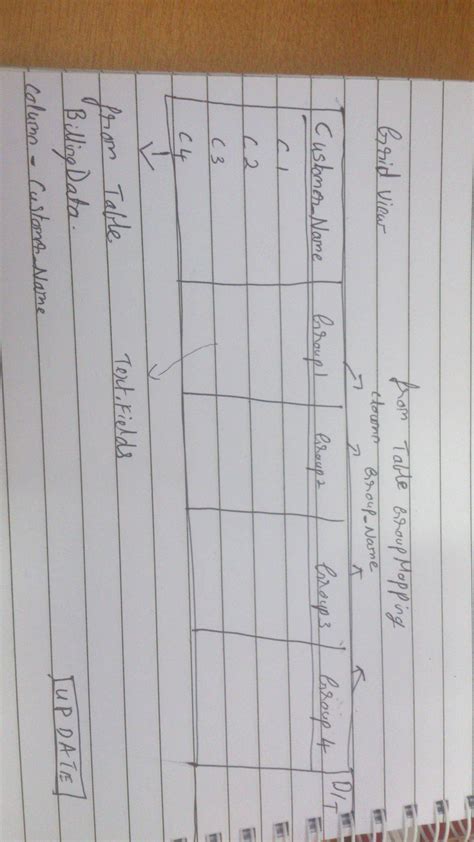 Grid View
from Table GroupMapping
Column Group_Name
Customer_Name Group1 Group2 Group3 Group4
C1
C2
C3
C4
from Table
BillingData.
Column - Customer_Name
TextFields
UPDATE